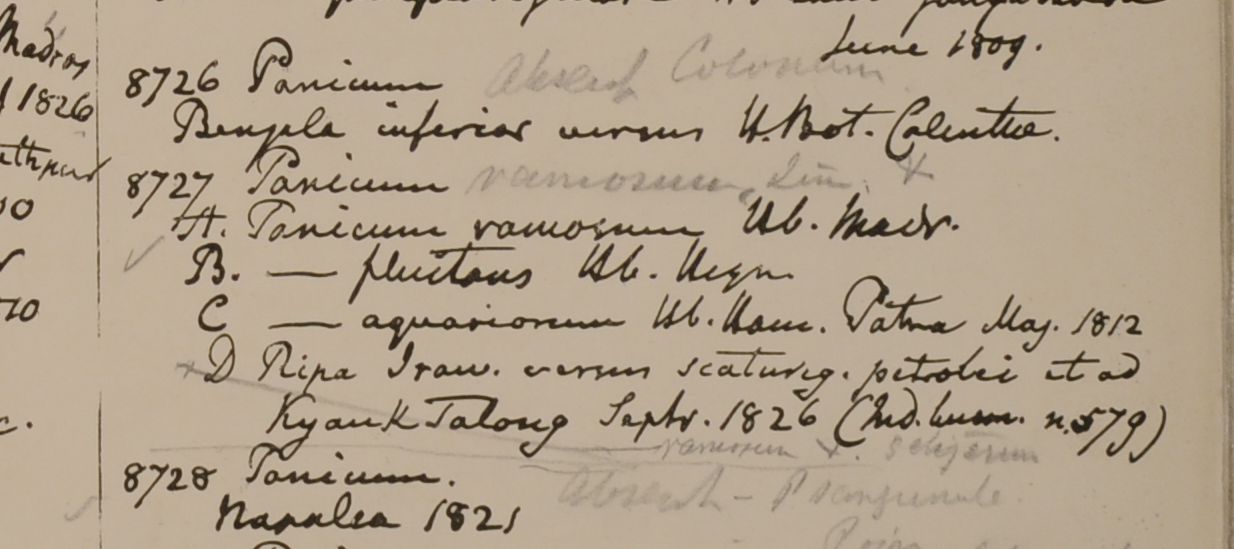 Madras
1826
June 1809.
8726 Panicum Absent Colonum
Bengala inferior versus H. Bot. Calcuttae.
8727 Panicum ramosum, Lin. &
A. Panicum ramosum Hb. Madr.
B. — fluitans Hb. Heyn.
C — aquariorum Hb. Ham. Patna Maj. 1812
D Ripa Iraw. versus scaturig. petrolei et ad
Kyouk Talong Septr. 1826 (Ind. burm. n. 579)
ramosum &. setigerum
8728 Panicum. Absent - P sanguinale
Napalea 1821